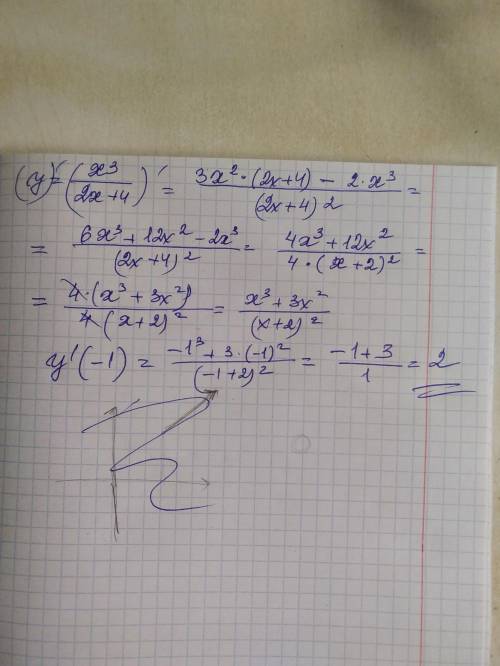 (y)' = (x³/(2x+4))' = (3x²·(2x+4) − 2·x³)/(2x+4)² =
= (6x³+12x²−2x³)/(2x+4)² = (4x³+12x²)/(4·(x+2)²) =
= (4·(x³+3x²))/(4(x+2)²) = (x³+3x²)/(x+2)²
y'(-1) = (-1³+3·(-1)²)/(-1+2)² = (-1+3)/1 = 2